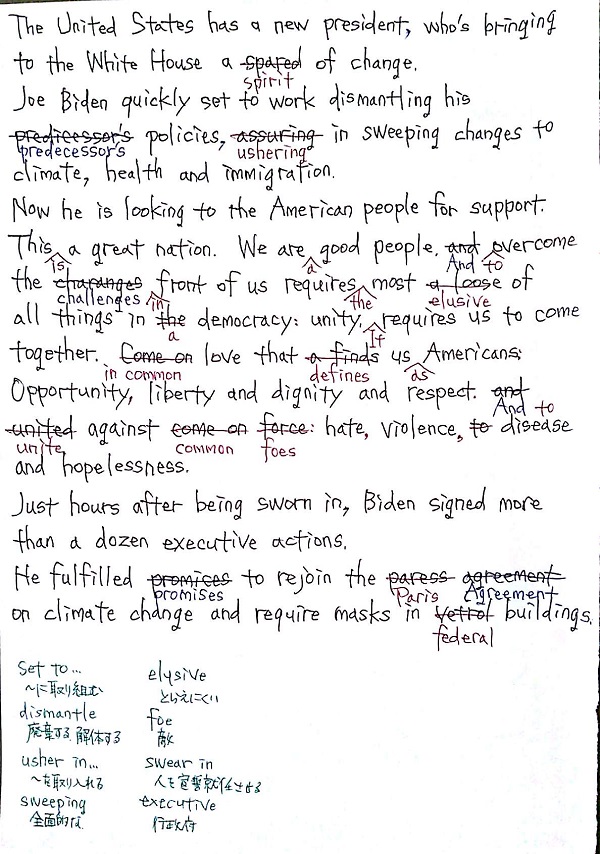 The United States has a new president, who's bringing
to the White House a spared of change.
spirit
Joe Biden quickly set to work dismantling his
predicessor's policies, assuring in sweeping changes to
predecessor's ushering
climate, health and immigration.
Now he is looking to the American people for support.
This a great nation. We are good people. and overcome
is a And to
the charanges front of us requires most a loose of
challenges in the elusive
all things in the democracy: unity, requires us to come
a It
together. Come on love that a finds us Americans:
in common defines as
Opportunity, liberty and dignity and respect. and
And to
united against come on force: hate, violence, to disease
unite common foes
and hopelessness.
Just hours after being sworn in, Biden signed more
than a dozen executive actions.
He fulfilled promices to rejoin the paress agreement
promises Paris Agreement
on climate change and require masks in vetrol buildings.
federal
set to... elysive
〜に取り組む とらえにくい
dismantle foe
廃棄する、解体する 敵
usher in... swear in
〜を取り入れる 人を宣誓就任させる
sweeping executive
全面的な 行政府